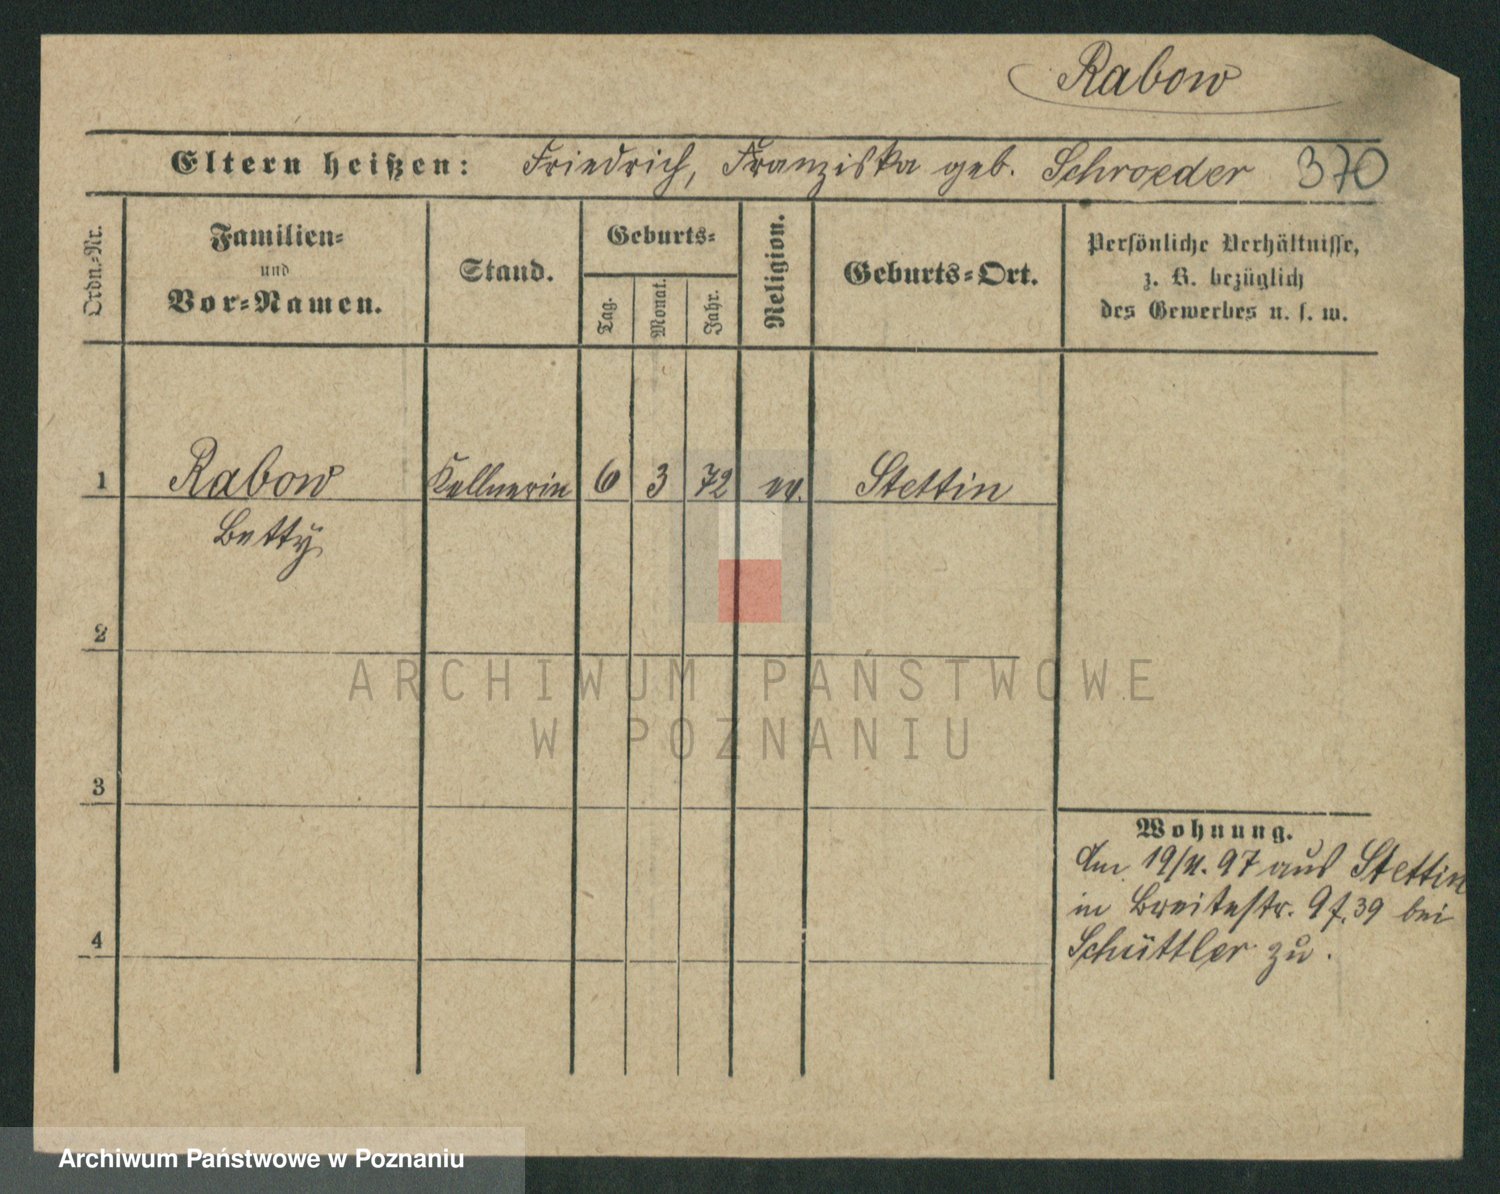 Rabow
Eltern heißen: Friedrich, Franziska geb. Schroeder 370
Ordn.-Nr.
Familien-
und
Vor-Namen.
Stand.
Geburts-
Tag.
Monat.
Jahr.
Religion.
Geburts-Ort.
Persönliche Verhältnisse,
z. B. bezüglich
des Gewerbes u. s. w.
1 Rabow Kellnerin 6 3 72 ev. Stettin
Betty
2
ARCHIWUM PAŃSTWOWE
W POZNANIU
3
Wohnung.
Am 19/4. 97 aus Stettin
in Breitestr. 9 f. 39 bei
4
Schüttler zu.
Archiwum Państwowe w Poznaniu